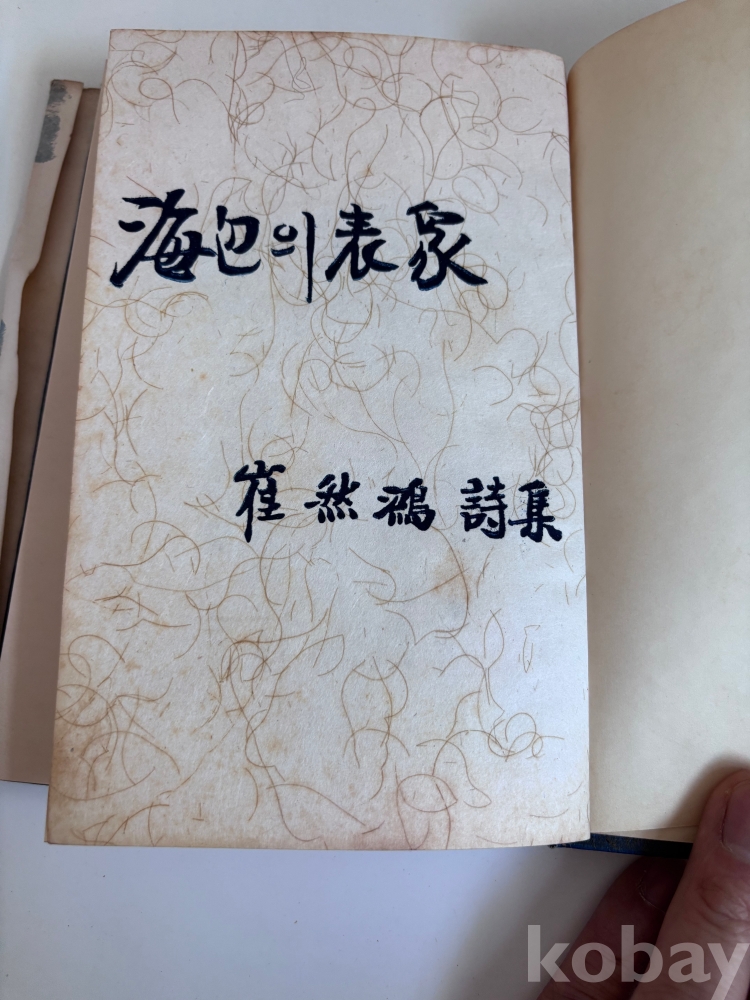 海色의表象
崔然鴻 詩集
kobay